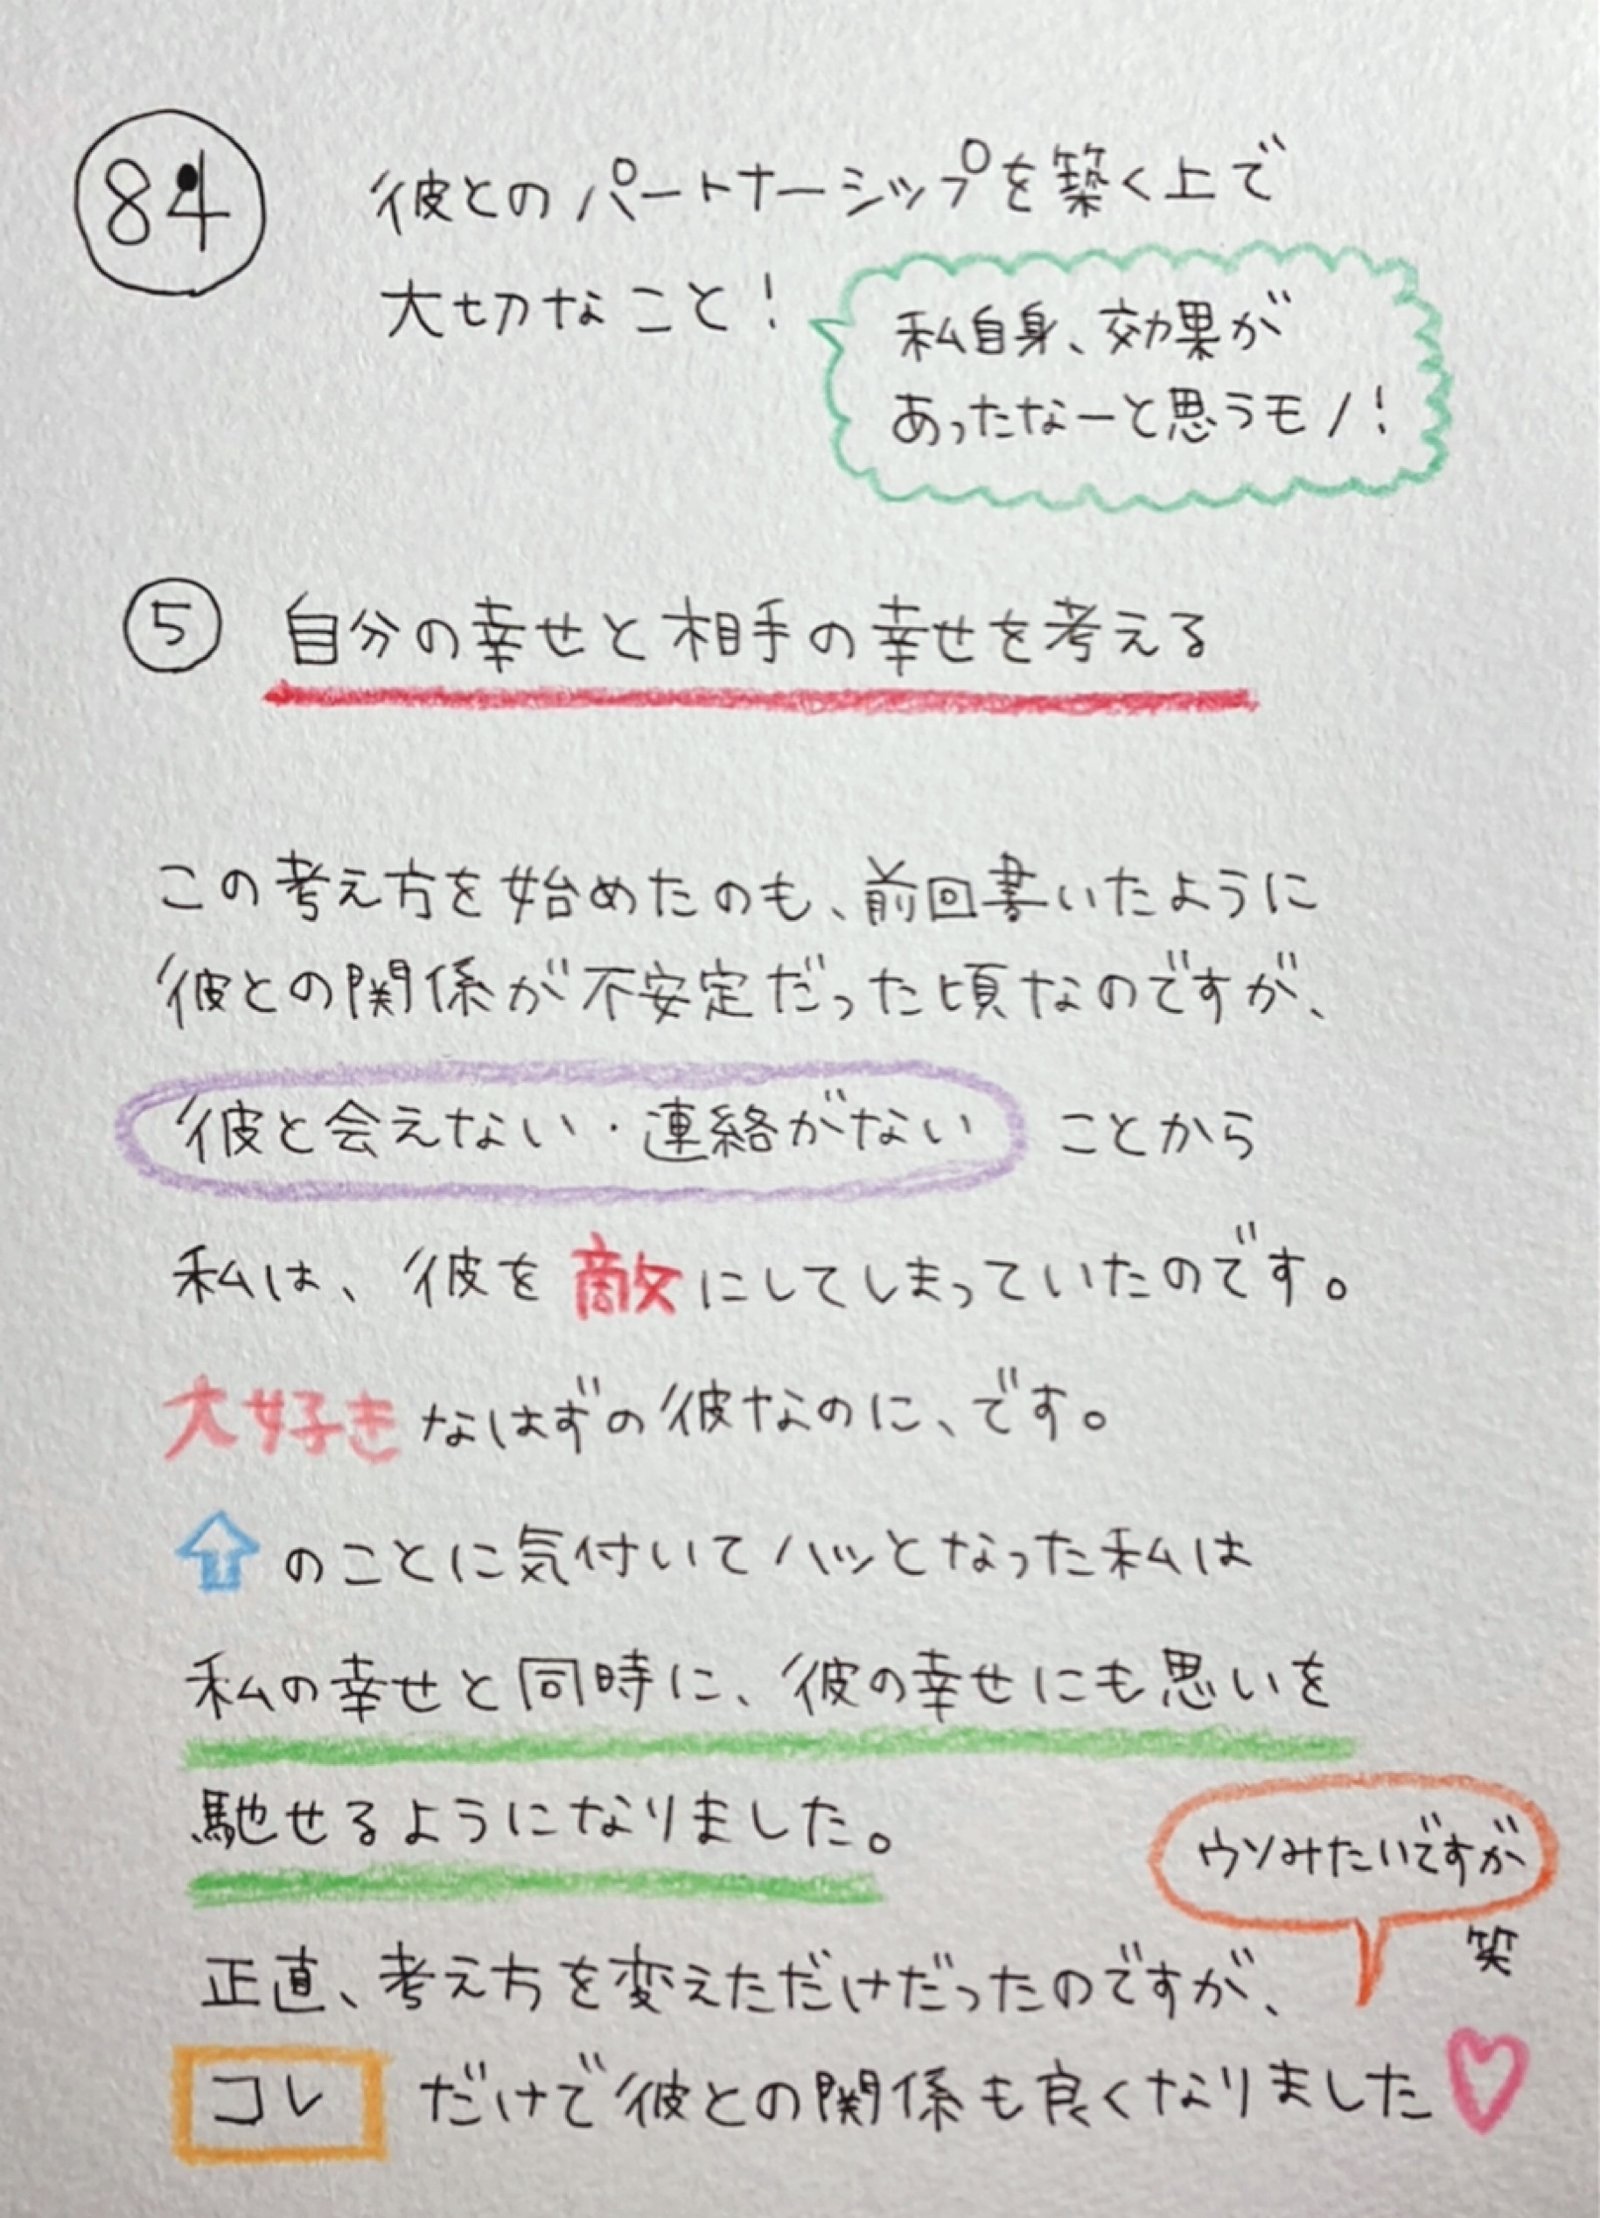 84
彼とのパートナーシップを築く上で
大切なこと！
私自身、効果が
あったなーと思うモノ！
⑤ 自分の幸せと相手の幸せを考える
この考え方を始めたのも、前回書いたように
彼との関係が不安定だった頃なのですが、
彼と会えない・連絡がない ことから
私は、彼を敵にしてしまっていたのです。
大好きなはずの彼なのに、です。
⇧のことに気付いてハッとなった私は
私の幸せと同時に、彼の幸せにも思いを
馳せるようになりました。
ウソみたいですが
笑
正直、考え方を変えただけだったのですが、
コレ だけで彼との関係も良くなりました♡